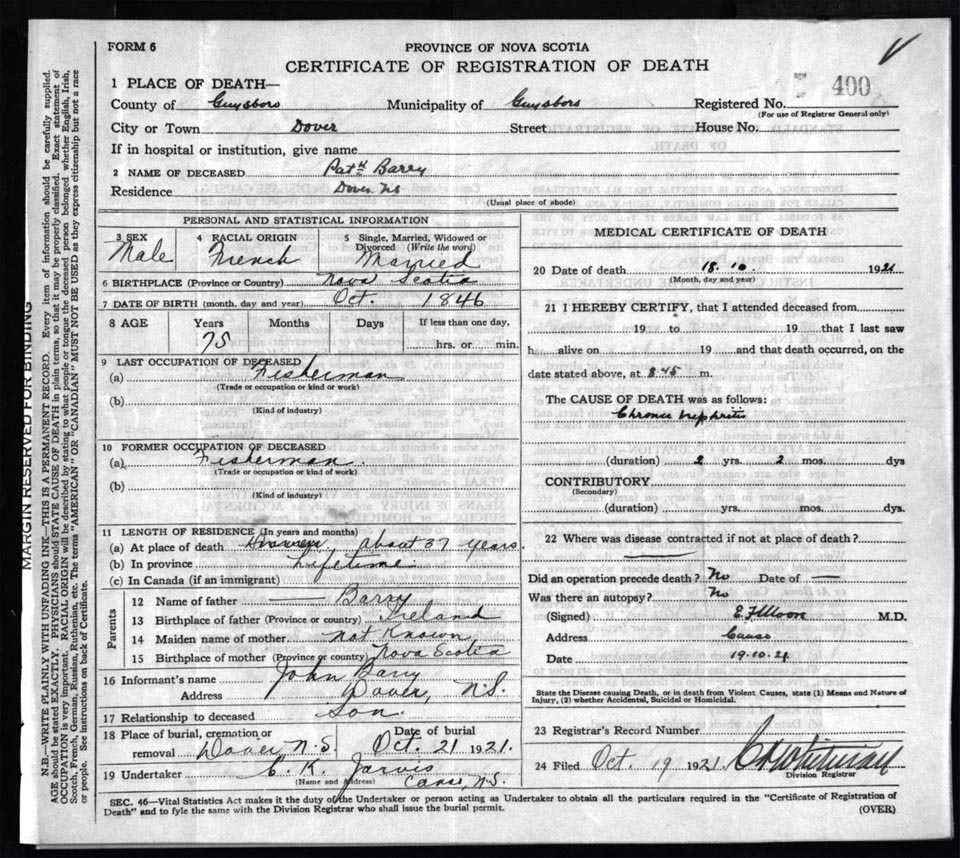 FORM 6
PROVINCE OF NOVA SCOTIA
CERTIFICATE OF REGISTRATION OF DEATH
1 PLACE OF DEATH—
County of Guysboro Municipality of Guysboro Registered No. 400
(For use of Registrar General only)
City or Town Dover Street House No.
If in hospital or institution, give name
2 NAME OF DECEASED Patk Barry
Residence Dover NS
(Usual place of abode)
PERSONAL AND STATISTICAL INFORMATION
3 SEX 4 RACIAL ORIGIN 5 Single, Married, Widowed or
Divorced (Write the word)
Male French Married
6 BIRTHPLACE (Province or Country) Nova Scotia
7 DATE OF BIRTH (month, day and year) Oct. 1846
8 AGE Years Months Days If less than one day,
75 hrs. or min.
9 LAST OCCUPATION OF DECEASED
(a) Fisherman
(Trade or occupation or kind or work)
(b)
(Kind of industry)
10 FORMER OCCUPATION OF DECEASED
(a) Fisherman.
(Trade or occupation or kind of work)
(b)
(Kind of industry)
11 LENGTH OF RESIDENCE (In years and months)
(a) At place of death about 37 years.
(b) In province Lifetime.
(c) In Canada (if an immigrant)
Parents
12 Name of father — Barry
13 Birthplace of father (Province or country) Ireland
14 Maiden name of mother not Known
15 Birthplace of mother (Province or country) Nova Scotia
16 Informant's name John Barry
Address Dover, N.S.
17 Relationship to deceased Son.
18 Place of burial, cremation or Date of burial
removal Dover N.S. Oct. 21 1921.
19 Undertaker C. K. Jarvis
(Name and address) Canso, N.S.
MEDICAL CERTIFICATE OF DEATH
20 Date of death 18.10 1921
(Month, day and year)
21 I HEREBY CERTIFY, that I attended deceased from
19 to 19 that I last saw
h alive on 19 and that death occurred, on the
date stated above, at 8.45 m.
The CAUSE OF DEATH was as follows:
Chronic nephritis
(duration) 2 yrs. 2 mos. dys
CONTRIBUTORY
(Secondary)
(duration) yrs. mos. dys.
22 Where was disease contracted if not at place of death?
Did an operation precede death? No Date of —
Was there an autopsy? No
(Signed) E. F. Moore M.D.
Address Canso
Date 19.10.21
State the Disease causing Death, or in death from Violent Causes, state (1) Means and Nature of
Injury, (2) whether Accidental, Suicidal or Homicidal.
23 Registrar's Record Number
24 Filed Oct. 19 1921
Division Registrar
SEC. 46—Vital Statistics Act makes it the duty of the Undertaker or person acting as Undertaker to obtain all the particulars required in the "Certificate of Registration of
Death" and to fyle the same with the Division Registrar who shall issue the burial permit.
(OVER)
MARGIN RESERVED FOR BINDING
N.B.—WRITE PLAINLY WITH UNFADING INK—THIS IS A PERMANENT RECORD. Every item of information should be carefully supplied.
AGE should be stated EXACTLY. PHYSICIANS should STATE CAUSE OF DEATH in plain terms, so that it may be properly classified. Exact statement of
OCCUPATION is very important. RACIAL ORIGIN will be described by stating to what people or tongue the deceased person belonged whether English, Irish,
Scotch, French, German, Russian, Ruthenian, etc. The terms "AMERICAN" OR "CANADIAN" MUST NOT BE USED as they express citizenship but not a race
or people. See instructions on back of Certificate.